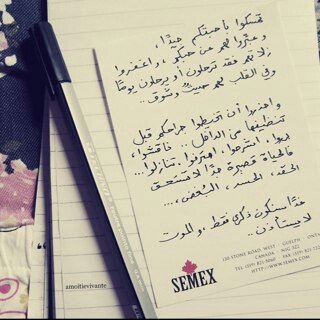 تمسكوا بأحبتكم جيداً،
وعبّروا لهم عن حبكم واغفروا
زلاتهم فقد ترحلون أو يرحلون يوماً
وفي القلب لهم حديث وشوق..
واحذروا أن تخيطوا جراحكم قبل
تنظيفها من الداخل.. ناقشوا،
برروا، اشرحوا، اعترفوا، تنازلوا...
فالحياة قصيرة جداً لا تستحق
الحقد، الحسد، البغض،...
غداً سنكون ذكرى فقط، والموت
لا يستأذن..
130 STONE ROAD WEST GUELPH ONT
CANADA N1G 3Z2
TEL (519) 821-5060 FAX (519) 821-72
HTTP://WWW.SEMEX.COM
SEMEX
amoitievivante